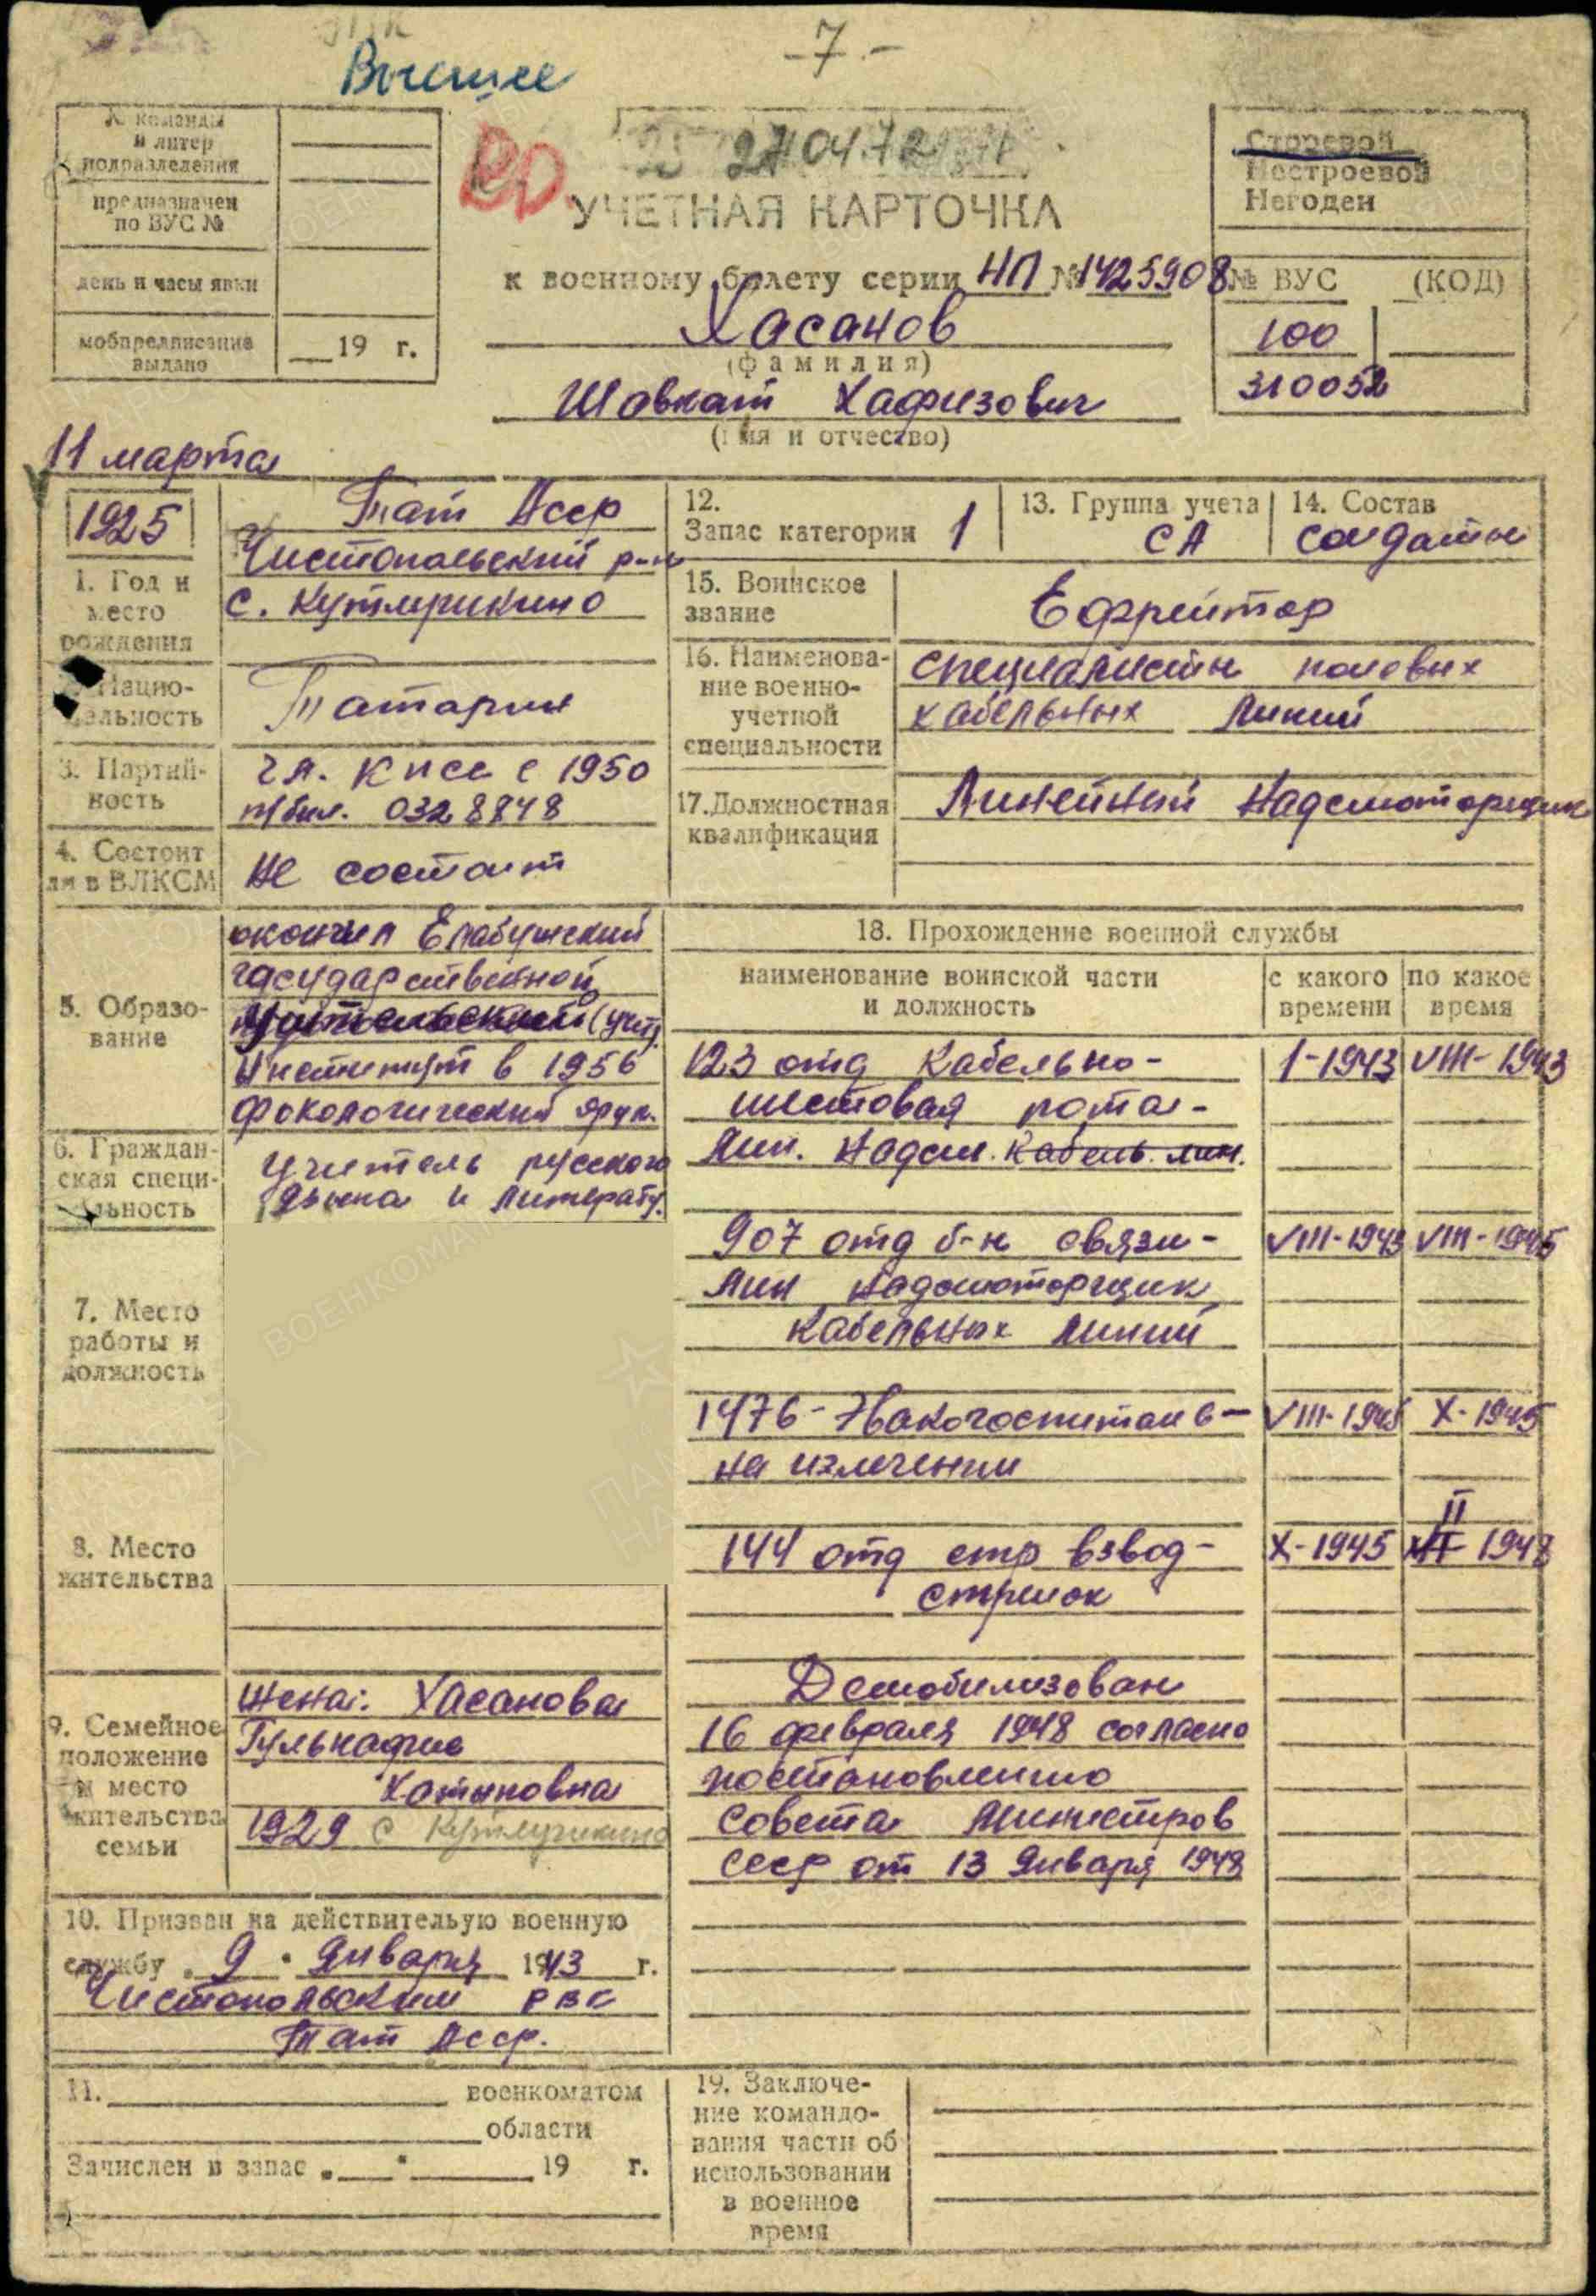 - 7 -
Высшее
№ команды
и литер
подразделения
предназначен
по ВУС №
день и часы явки
мобпредписание
выдано
19 г.
270472
УЧЕТНАЯ КАРТОЧКА
к военному билету серии НП № 1425908
Хасанов
(фамилия)
Шавкат Хафизович
(имя и отчество)
Строевой
Нестроевой
Негоден
№ ВУС (КОД)
100
310052
11 марта
1925
1. Год и
место
рождения
Тат Асср
Чистопольский р-н
с. Кутлушкино
Нацио-
нальность
Татарин
3. Партий-
ность
чл. КПСС с 1950
п/бил. 0328848
4. Состоит
ли в ВЛКСМ
не состоит
5. Образо-
вание
окончил Елабужский
государственной
(учит)
Институт в 1956
фокологический фук.
6. Граждан-
ская специ-
альность
учитель русского
языка и литерату.
7. Место
работы и
должность
8. Место
жительства
9. Семейное
положение
и место
жительства
семьи
жена: Хасанова
Гулькафие
Хатыповна
1929 с Кутлушкино
10. Призван на действительую военную
службу 9 Января 1943 г.
Чистопольским РВК
Тат Асср.
11. военкоматом
области
Зачислен в запас 19 г.
12.
Запас категории 1
13. Группа учета
СА
14. Состав
солдаты
15. Воинское
звание
Ефрейтор
16. Наименова-
ние военно-
учетной
специальности
специалисты полевых
кабельных линий
17. Должностная
квалификация
Линейный надсмоторщик
18. Прохождение военной службы
наименование воинской части
и должность
с какого
времени
по какое
время
123 отд кабельно- 1-1943 VIII-1943
шестовая рота-
Лин. надсм. кабель. лин.
907 отд б-н связи- VIII-1943 VIII-1945
Лин надсмоторщик
кабельных линий
1476-Эвакогоспиталь- VIII-1945 X-1945
на излечении
II
144 отд стр взвод- X-1945 1948
стрелок
Демобилизован
16 февраля 1948 согласно
постановлению
совета Министров
ссср от 13 Января 1948
19. Заключе-
ние командо-
вания части об
использовании
в военное
время
ВОЕНКОМАТ